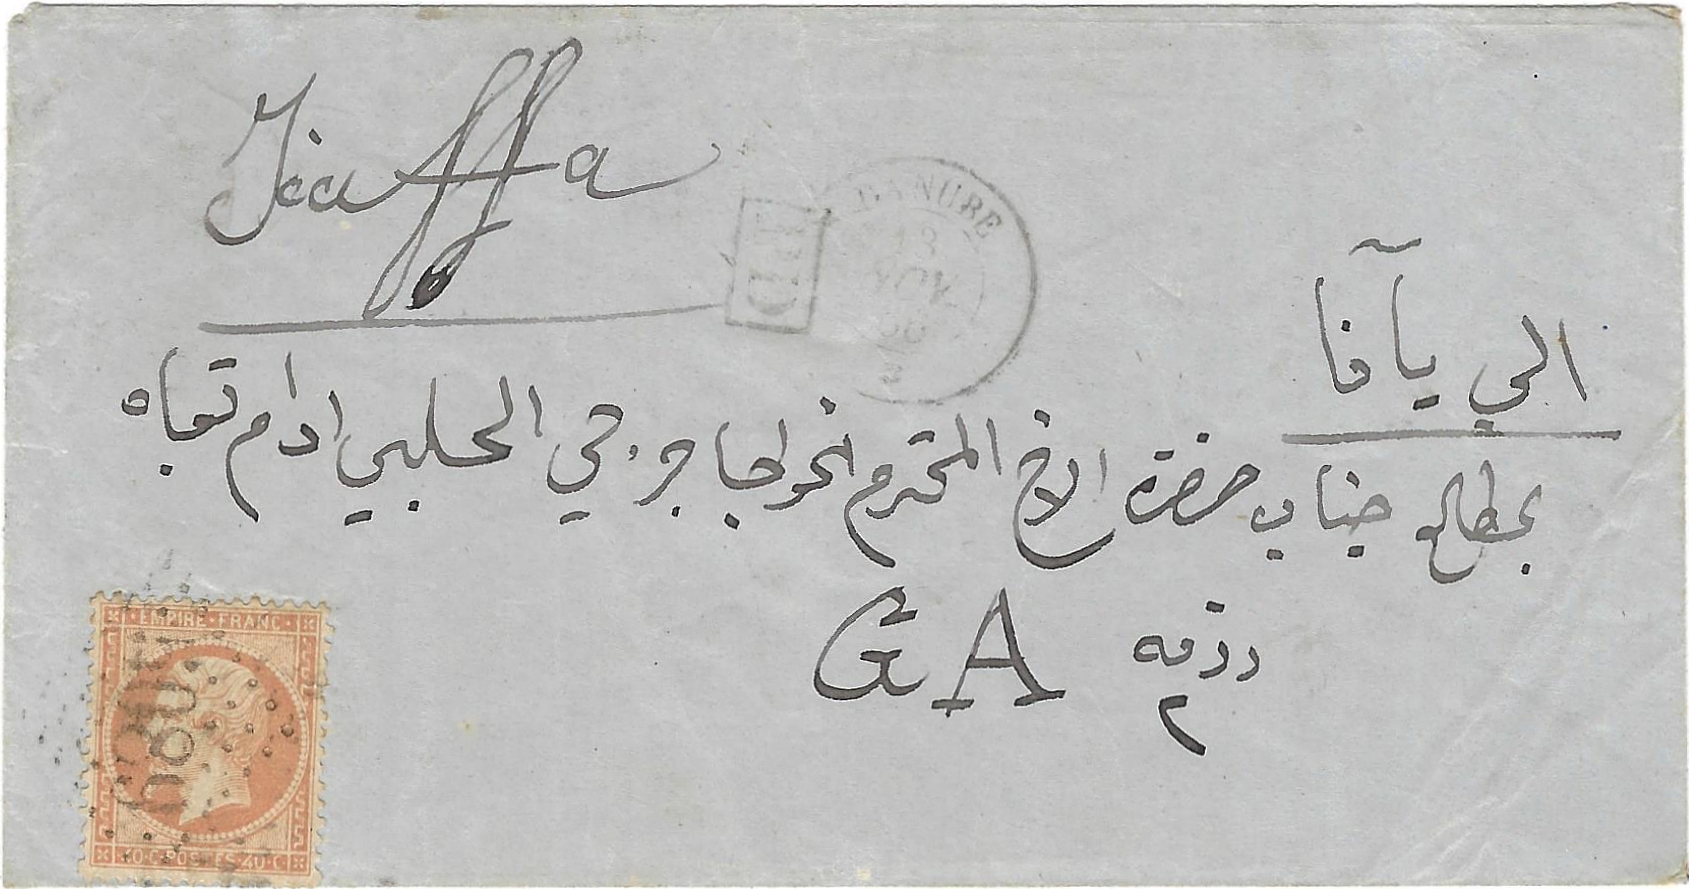 Jaffa
PD
DANUBE
13
NOV
الي يآفا
بمطالع جناب حضرة الاخ المحترم الخواجا جرجي الحلبي ادام بقاه
GA
٢
EMPIRE FRANC
40 C POSTES 40 C